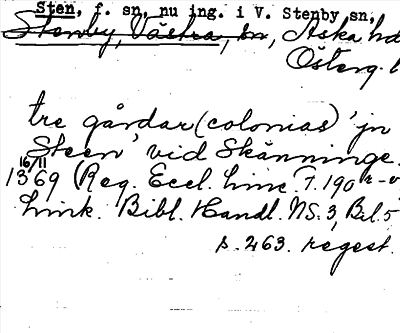 Sten, f. sn, nu ing. i V. Stenby sn,
Stenby, Västra, sn, Aska hd
Österg. l
tre gårdar (colonias) 'jn
Steen' vid Skänninge.
16/11
1369 (Reg. Eccl. Linc. f. 190 r-v
Link. Bibl. Handl. NS. 3, Bil. 5
s. 263. regest.